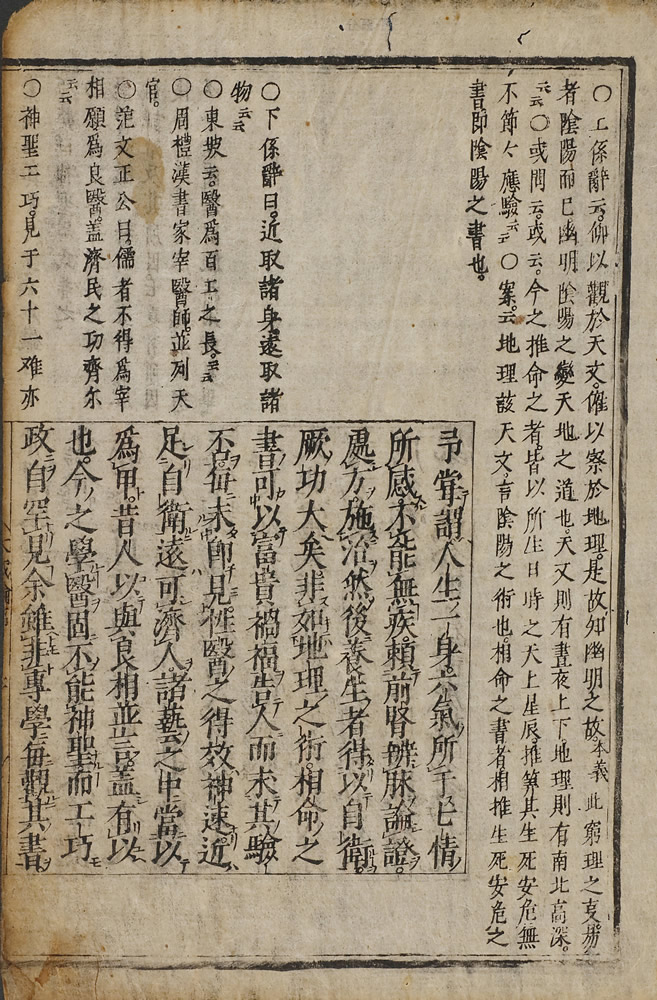 〇上係辭云。仰以觀於天文。俯以察於地理。是故知幽明之故。本義此窮理之事。易
者陰陽而已幽明陰陽之變天地之道也。天文則有晝夜上下地理則有南北高深。
云云〇或問云。或云。今之推命之者皆以所生日時之天上星辰推算其生死安危無
不節々應驗云云〇案。云地理該天文。言陰陽之術也。相命之書者相推生死安危之
書即陰陽之書也。
〇下係辭曰。近取諸身。遠取諸
物云云
〇東坡云。醫爲百工之長。云云
〇周禮漢書家宰醫師。並列天
官。
〇范文正公曰。儒者不得爲宰
相願爲良醫。蓋濟民之功齊尓
云云
〇神聖工巧。見于六十一难亦
予嘗謂人生一身六氣所干七情
所感不能無疾。頼前賢辨脉論證。
處方施治然後養生者得以自衛。
厥功大矣非如地理之術相命之
書可以富貴禍福告人而未其驗
不。毎未即見性醫之得效神速近
足自衛遠可濟人諸藝之中當以
爲甲。昔人以與良相並言蓋有以
也。今之學醫固不能神聖而工巧
政自空見余雖非專學毎觀其書